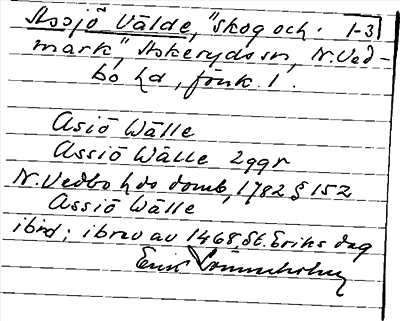 Assjö Välde, "skog och 1-3
mark", Askeryds sn, N. Ved-
bo hd, Jönk. l.
Asiö Wälle
Assiö Wälle 2 ggr
N. Vedbo hds domb, 1782 § 152
Assiö Wälle
ibid; i brev av 1468, St. Eriks dag
Erik